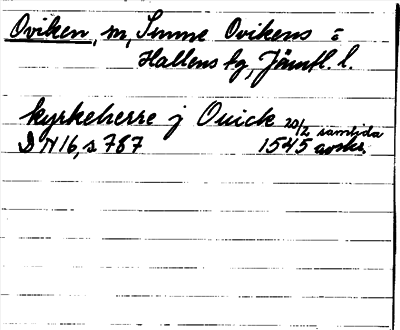 Oviken, m, Sunne Ovikens o
Hallens tg, Jämtl. l.
kyrkeherre j Ouick 20/2 samtida
DN 16, s 787 1545 avskr.